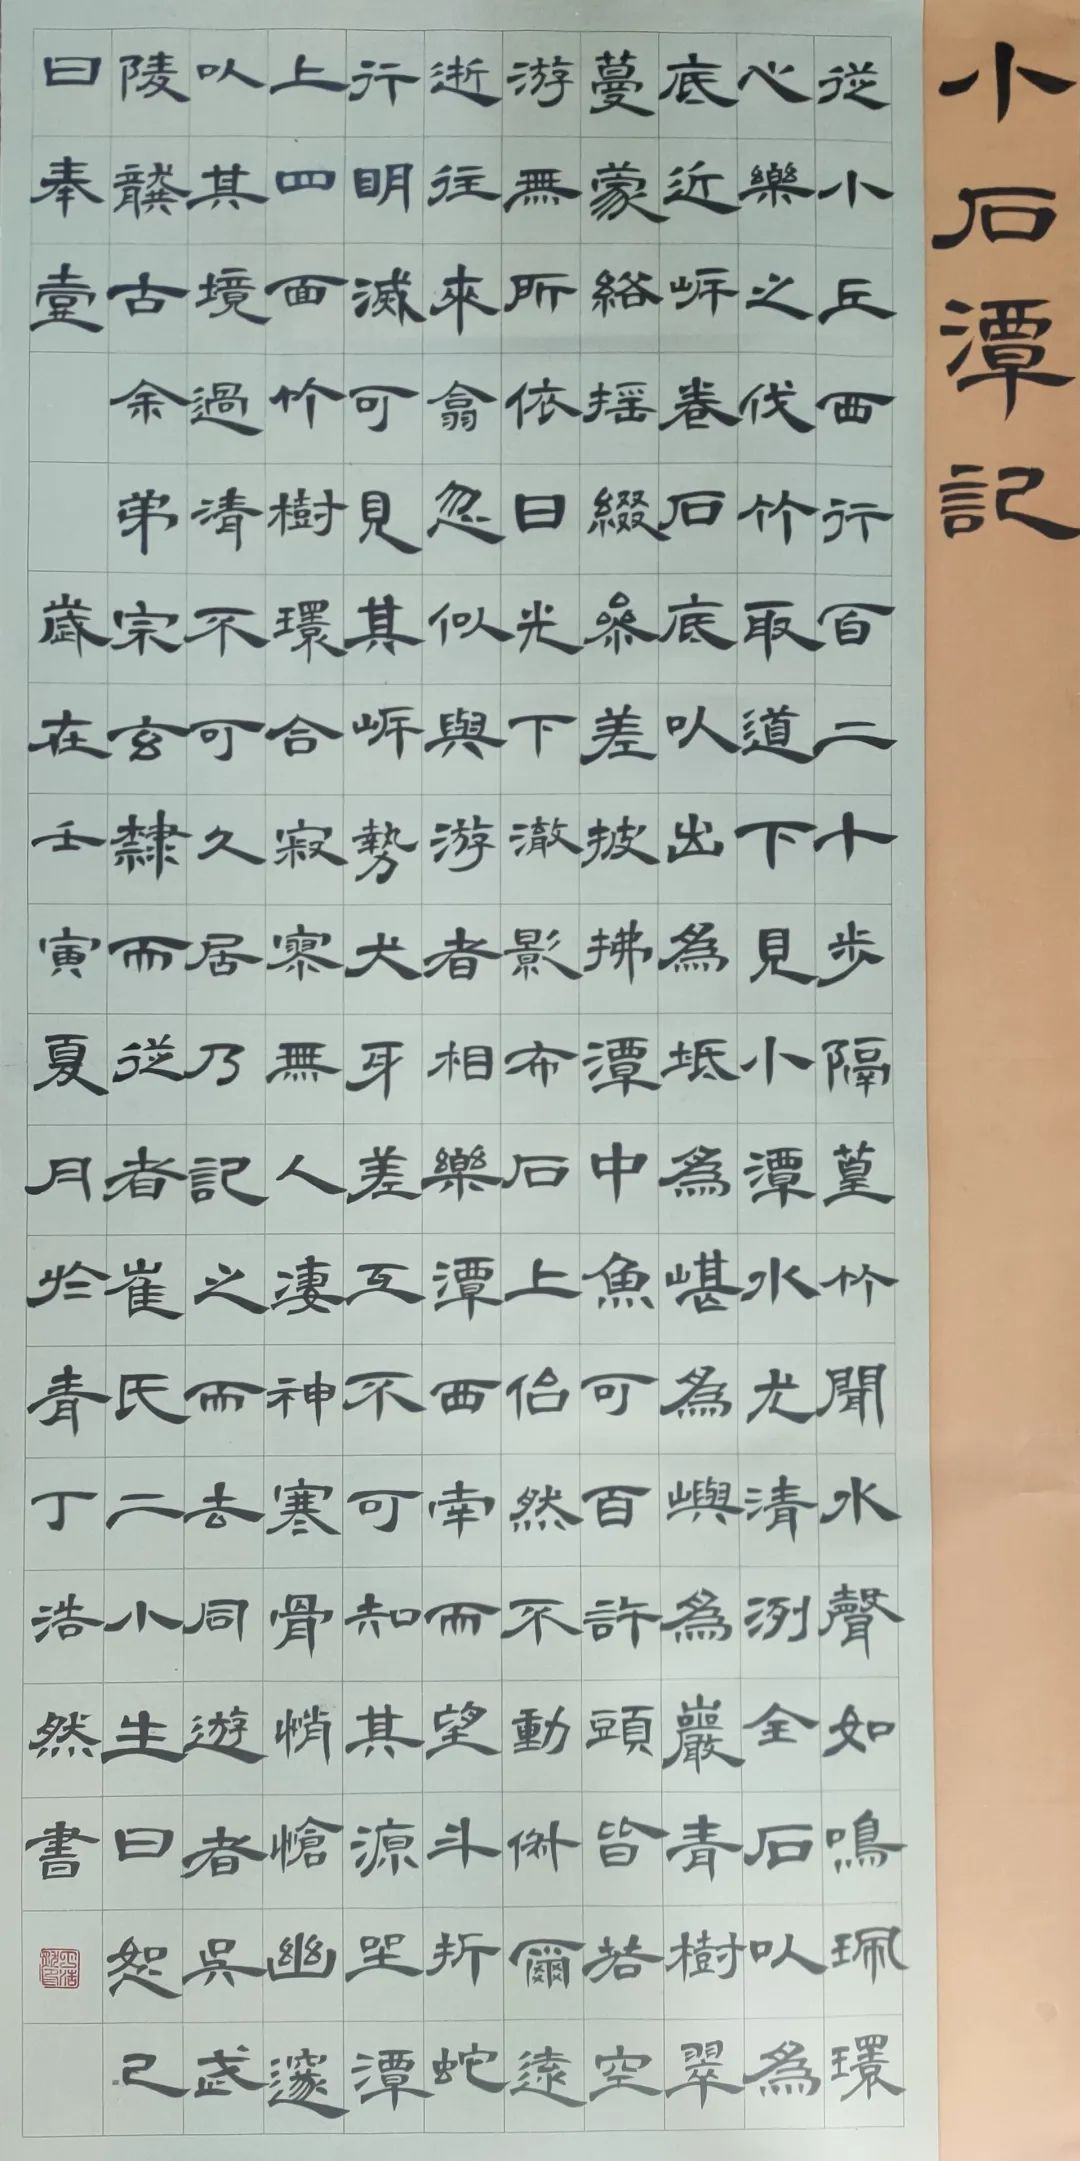 小石潭記
從小丘西行百二十步隔篁竹聞水聲如鳴珮環
心樂之伐竹取道下見小潭水尤清洌全石以為
底近岸卷石底以出為坻為嵁為嶼為巖青樹翠
蔓蒙絡搖綴參差披拂潭中魚可百許頭皆若空
游無所依日光下澈影布石上佁然不動俶爾遠
逝往來翕忽似與游者相樂潭西南而望斗折蛇
行明滅可見其岸勢犬牙差互不可知其源坐潭
上四面竹樹環合寂寥無人凄神寒骨悄愴幽邃
以其境過清不可久居乃記之而去同遊者吳武
陵龔古余弟宗玄隸而從者崔氏二小生曰恕己
曰奉壹 歲在壬寅夏月於青丁浩然書